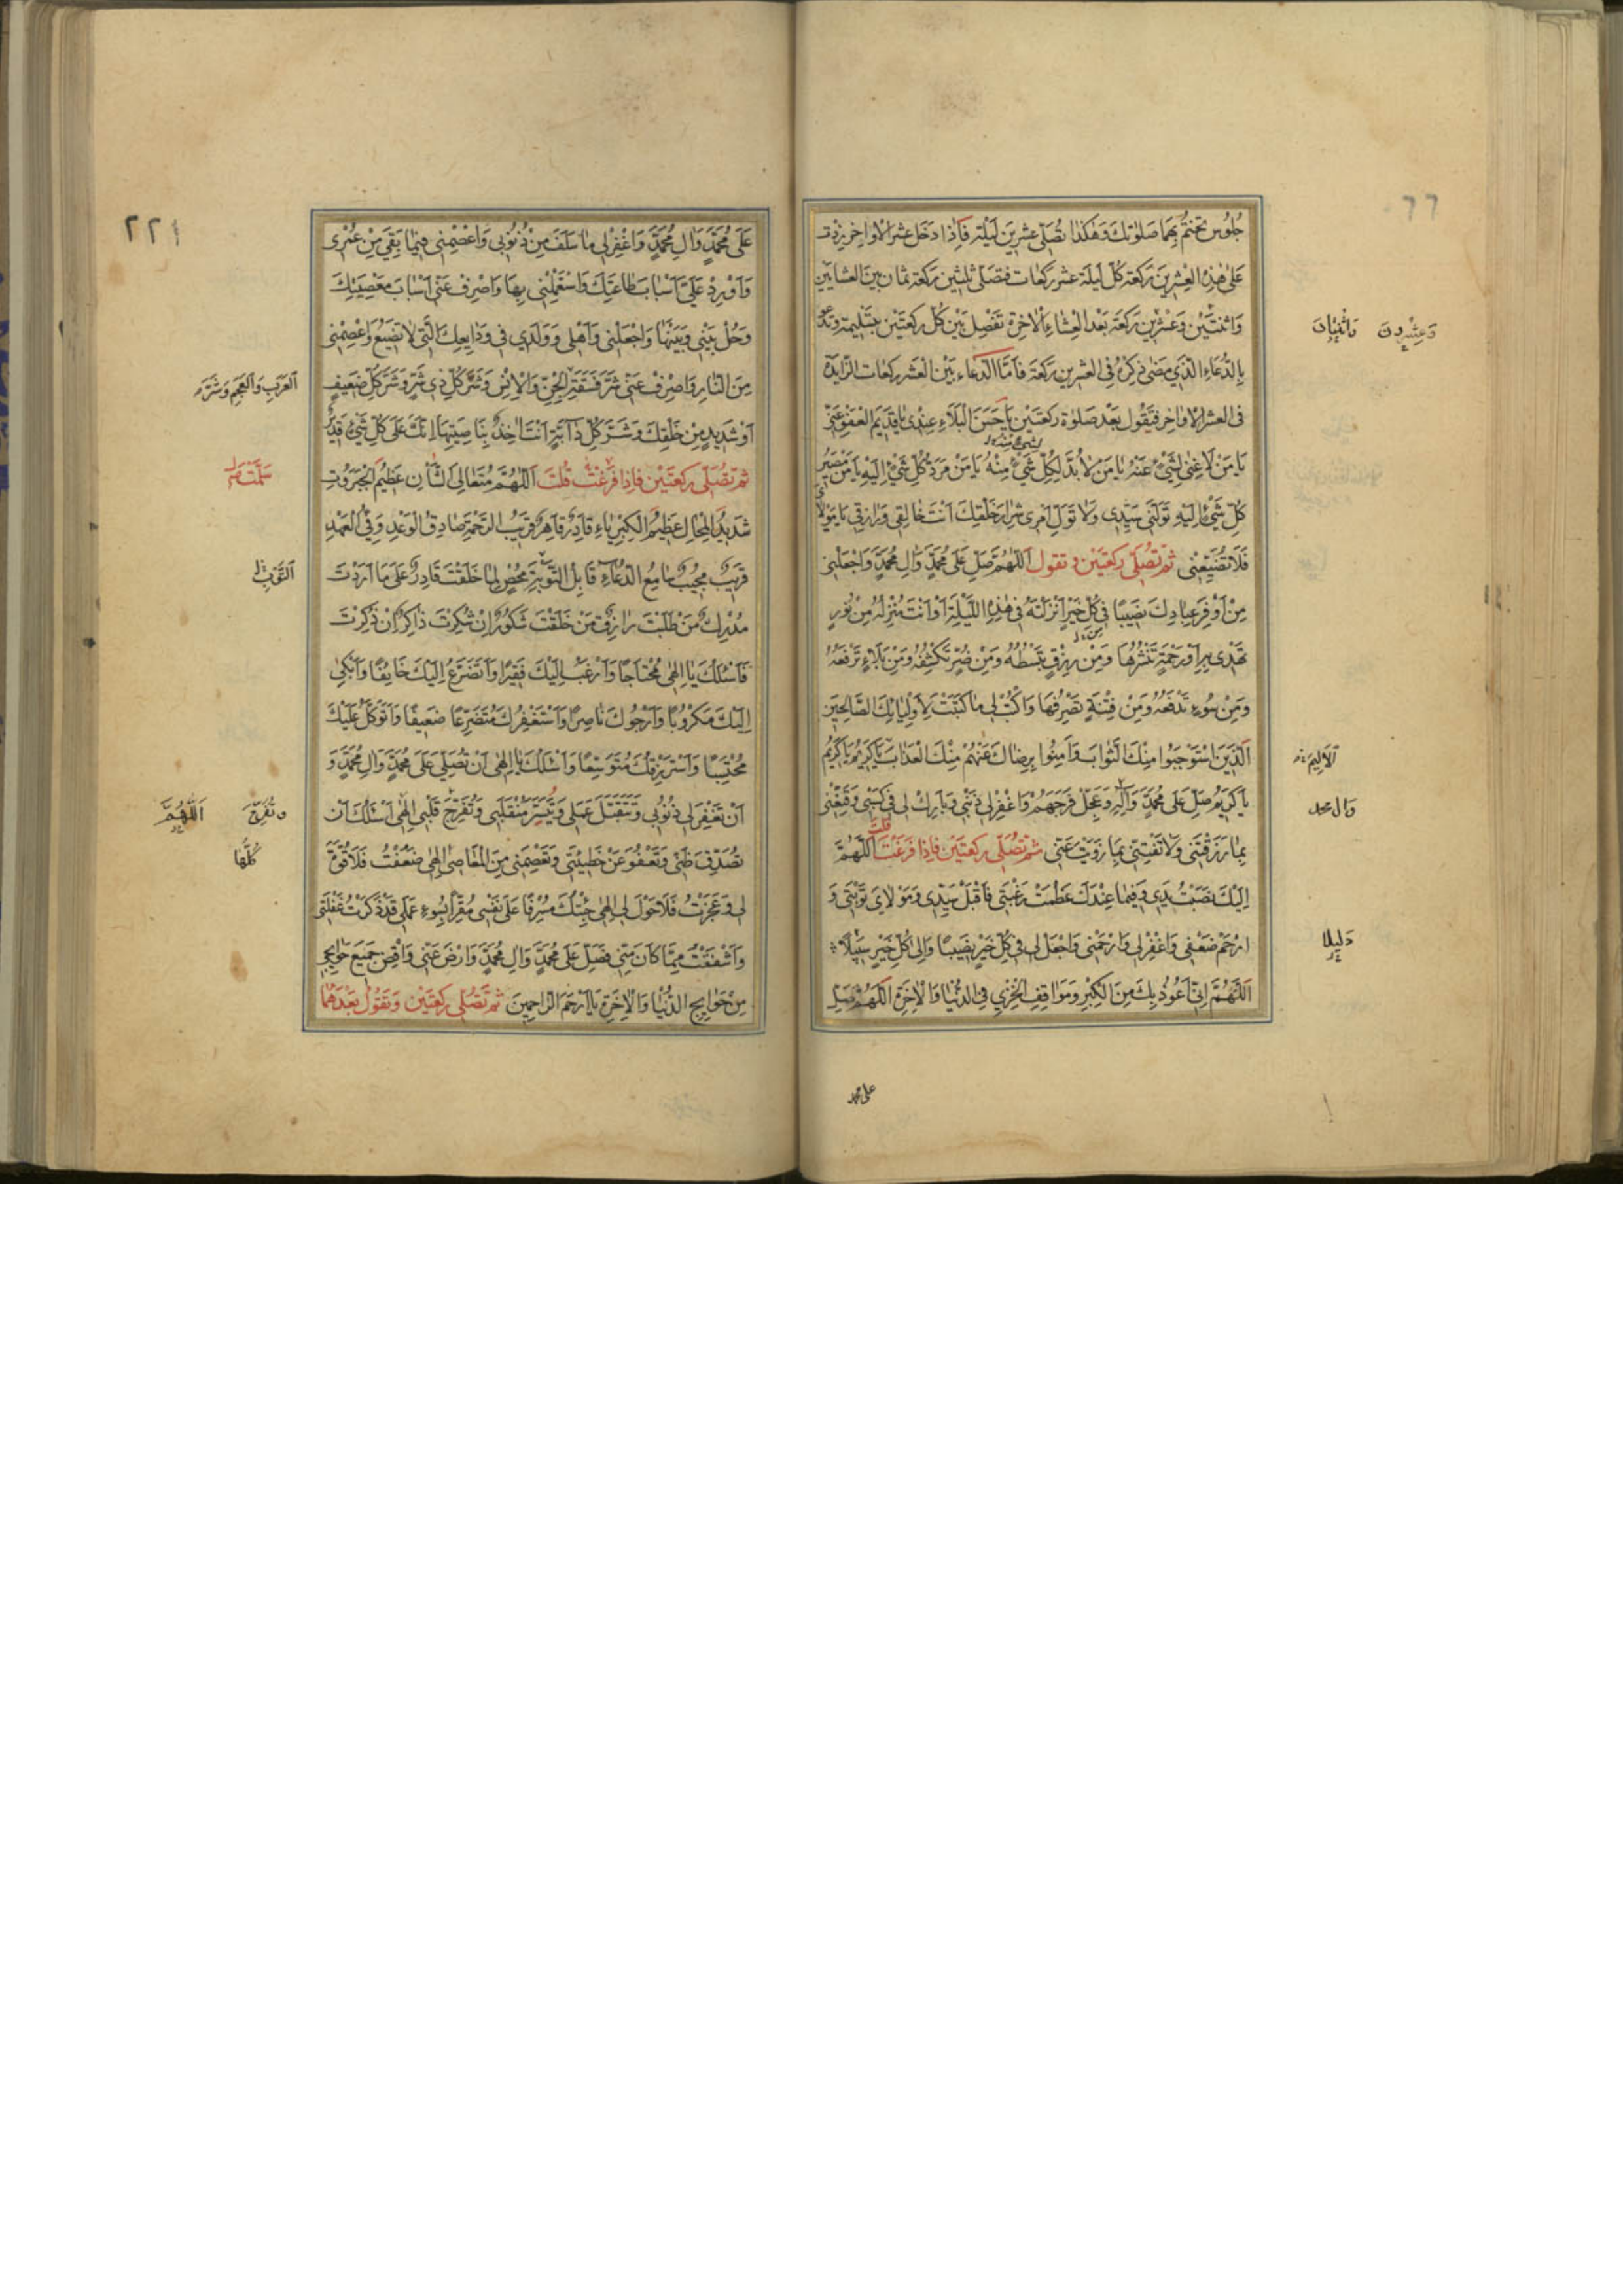 جُلُوسٌ تختمُ بِهِمَا صَلٰوتكَ وَهٰكَذا تُصَلّى عشرِينَ لَيْلَة فَاِذا دَخَلَ عشر الاَواخِر زِدْت
عَلىٰ هٰذِهِ العِشْرِينَ رَكعَة كُلّ لَيلَة عشر رَكعَات فتصَلّى ثلثين رَكعَة ثمان بين العشايَين
وَاثنتَيْن وَعشرِينَ رَكعَة بَعْدَ العِشَاءِ الاٰخِرَة تَفْصِل بَيْن كُل رَكعَتَيْن بتَسْليمة وتدعو
بِالدُّعَاءِ الّذي مَضىٰ ذِكرُهُ فِى العشرين رَكعَة فَاَمَّا الدّعَاء بَيْن العَشر رَكعات الزّايدَة
فى العشر الاَواخِر فتَقُول بَعْد صَلوٰة رَكعتَيْن يَا حَسَنَ البَلاَءِ عِنْدِى يَا قَدِيمَ العَفْوِ عَنّى
يَا مَنْ لاَ غِنىٰ لِشَىْءٍ عَنْهُ يَا مَنْ لاَ بُدَّ لِكُلِّ شَىْءٍ مِنْهُ يَا مَنْ مَرَدُّ كُلِّ شَىْءٍ اِلَيْهِ يَا مَنْ مَصِيرُ
كُلِّ شَىْءٍ اِلَيْهِ تَوَلَّنى سَيِّدِى وَلاَ تُوَلِّ اَمْرِى شِرَارَ خَلْقِكَ اَنْتَ خَالِقى وَرَازِقِى يَا مَوْلاَىَ
فَلاَ تُضَيِّعْنِى ثُمّ تُصَلّى رَكعتَيْن وَتقول اَللّٰهُمَّ صَلِّ عَلىٰ مُحَمَّدٍ وَاٰلِ مُحَمَّدٍ وَاجْعَلْنِى
مِنْ اَوْفَرِ عِبَادِكَ نَصِيبًا فِى كُلِّ خَيْرٍ اَنْزَلْتَهُ فِى هٰذِهِ اللَّيْلَةِ اَوْ اَنْتَ مُنْزِلُهُ مِنْ نُورٍ
تَهْدِى بِهِ اَوْ رَحْمَةٍ تَنْشُرُهَا وَمِنْ رِزْقٍ تَبْسُطُهُ وَمِنْ ضُرٍّ تَكْشِفُهُ وَمِنْ بَلاَءٍ تَرْفَعُهُ
وَمِنْ سُوءٍ تَدْفَعُهُ وَمِنْ فِتْنَةٍ تَصْرِفُهَا وَاكْتُبْ لِى مَا كَتَبْتَ لِاَوْلِيَائِكَ الصَّالِحِينَ
الَّذِينَ اسْتَوْجَبُوا مِنْكَ الثَّوابَ وَاٰمِنُوا بِرِضَاكَ عَنْهُمْ مِنْكَ الْعَذابَ يَا كَرِيمُ يَا كَرِيمُ
يَا كَرِيمُ صَلِّ عَلىٰ مُحَمَّدٍ وَاٰلِهِ وَعَجِّلْ فَرَجَهُمْ وَاغْفِرْ لِى ذَنْبِى وَبَارِكْ لِى فِى كَسْبِى وَقَنِّعْنِى
بِمَا رَزَقْتَنِى وَلاَ تَفْتِنِّى بِمَا زَوَيْتَ عَنِّى ثم تُصَلّى رَكعَتَيْن فَاِذا فَرَغْتَ قلت اَللّٰهُمَّ
اِلَيْكَ نَصَبْتُ يَدِى وَفِيمَا عِنْدَكَ عَظُمَتْ رَغْبَتِى فَاقْبَلْ سَيِّدِى وَمَوْلاَىَ تَوْبَتِى وَ
ارْحَمْ ضَعْفِى وَاغْفِرْ لِى وَارْحَمْنِى وَاجْعَلْ لِى فِى كُلِّ خَيْرٍ نَصِيبًا وَاِلىٰ كُلِّ خَيْرٍ سَبِيلاً
اَللّٰهُمَّ اِنِّى اَعُوذُ بِكَ مِنَ الْكِبْرِ وَمَوَاقِفِ الْخِزْىِ فِى الدُّنْيَا وَالاٰخِرَةِ اَللّٰهُمَّ صَلِّ
وَعِشْرُونَ وَاثْنَتَانِ
الاَلِيمَ
وَال محمد
دَلِيلا
على محمد
٢٢١
عَلىٰ مُحَمَّدٍ وَاٰلِ مُحَمَّدٍ وَاغْفِرْ لِى مَا سَلَفَ مِنْ ذُنُوبِى وَاعْصِمْنِى فِيمَا بَقِىَ مِنْ عُمْرِى
وَاَوْرِدْ عَلَىَّ اَسْبَابَ طَاعَتِكَ وَاسْتَعْمِلْنِى بِهَا وَاصْرِفْ عَنِّى اَسْبَابَ مَعْصِيَتِكَ
وَحُلْ بَيْنِى وَبَيْنَهَا وَاجْعَلْنِى وَاَهْلِى وَوَلَدِى فِى وَدَايِعِكَ الَّتِى لاَ تَضِيعُ وَاعْصِمْنِى
مِنَ النَّارِ وَاصْرِفْ عَنِّى شَرَّ فَسَقَةِ الْجِنِّ وَالْاِنْسِ وَشَرَّ كُلِّ ذِى شَرٍّ وَشَرَّ كُلِّ ضَعِيفٍ
اَوْ شَدِيدٍ مِنْ خَلْقِكَ وَشَرَّ كُلِّ دَابَّةٍ اَنْتَ اٰخِذٌ بِنَاصِيَتِهَا اِنَّكَ عَلىٰ كُلِّ شَىْءٍ قَدِيرٌ
ثم تُصَلّى رَكعتَيْن فاِذا فَرَغْتَ قُلتَ اَللّٰهُمَّ مُتَعَالِىَ الشَّاْنِ عَظِيمَ الْجَبَرُوتِ
شَدِيدُ الْمِحَالِ عَظِيمُ الْكِبْرِيَاءِ قَادِرٌ قَاهِرٌ قَرِيبُ الرَّحْمَةِ صَادِقُ الْوَعْدِ وَفِىُّ الْعَهْدِ
قَرِيبٌ مُجِيبٌ سَامِعُ الدُّعَاءِ قَابِلُ التَّوْبَةِ مُحْصٍ لِمَا خَلَقْتَ قَادِرٌ عَلىٰ مَا اَرَدْتَ
مُدْرِكٌ مَنْ طَلَبْتَ رَازِقٌ مَنْ خَلَقْتَ شَكُورٌ اِنْ شُكِرْتَ ذَاكِرٌ اِنْ ذُكِرْتَ
فَاَسْئَلُكَ يَا اِلٰهِى مُحْتَاجًا وَاَرْغَبُ اِلَيْكَ فَقِيرًا وَاَتَضَرَّعُ اِلَيْكَ خَائِفًا وَاَبْكِى
اِلَيْكَ مَكْرُوبًا وَاَرْجُوكَ نَاصِرًا وَاَسْتَغْفِرُكَ مُتَضَرِّعًا ضَعِيفًا وَاَتَوَكَّلُ عَلَيْكَ
مُحْتَسِبًا وَاَسْتَرْزِقُكَ مُتَوَسِّعًا وَاَسْئَلُكَ يَا اِلٰهِى اَنْ تُصَلِّىَ عَلىٰ مُحَمَّدٍ وَاٰلِ مُحَمَّدٍ وَ
اَنْ تَغْفِرَ لِى ذُنُوبِى وَتَتَقَبَّلَ عَمَلِى وَتُيَسِّرَ مُنْقَلَبِى وَتُفَرِّجَ قَلْبِى اِلٰهِى اَسْئَلُكَ اَنْ
تُصَدِّقَ ظَنِّى وَتَعْفُوَ عَنْ خَطِيئَتِى وَتَعْصِمَنِى مِنَ الْمَعَاصِى اِلٰهِى ضَعُفْتُ فَلاَ قُوَّةَ
لِى وَعَجَزْتُ فَلاَ حَوْلَ لِى اِلٰهِى جِئْتُكَ مُسْرِفًا عَلىٰ نَفْسِى مُقِرًّا بِسُوءِ عَمَلِى قَدْ ذَكَرْتُ غَفْلَتِى
وَاَشْفَقْتُ مِمَّا كَانَ مِنِّى فَصَلِّ عَلىٰ مُحَمَّدٍ وَاٰلِ مُحَمَّدٍ وَارْضَ عَنِّى وَاقْضِ جَمِيعَ حَوَايِجِى
مِنْ حَوَايِجِ الدُّنْيَا وَالاٰخِرَةِ يَا اَرْحَمَ الرَّاحِمِينَ ثم تُصَلّى رَكعتَيْن وَتَقُولُ بَعْدَهُمَا
العَرَبِ وَالعَجَمِ وَشَرَّ
سَلَّمْتَ
وَتُفَرِّحَ اَللّٰهُمَّ
كُلَّهَا